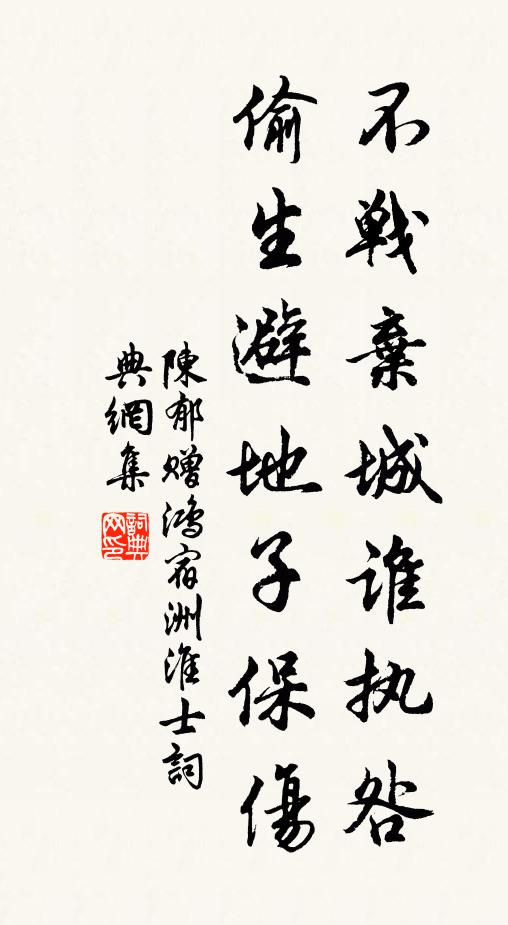 不戦棄城谁执咎
偷生避地子保傷
陳郁赠鴻宿洲淮士詞
典網集
詞典网印